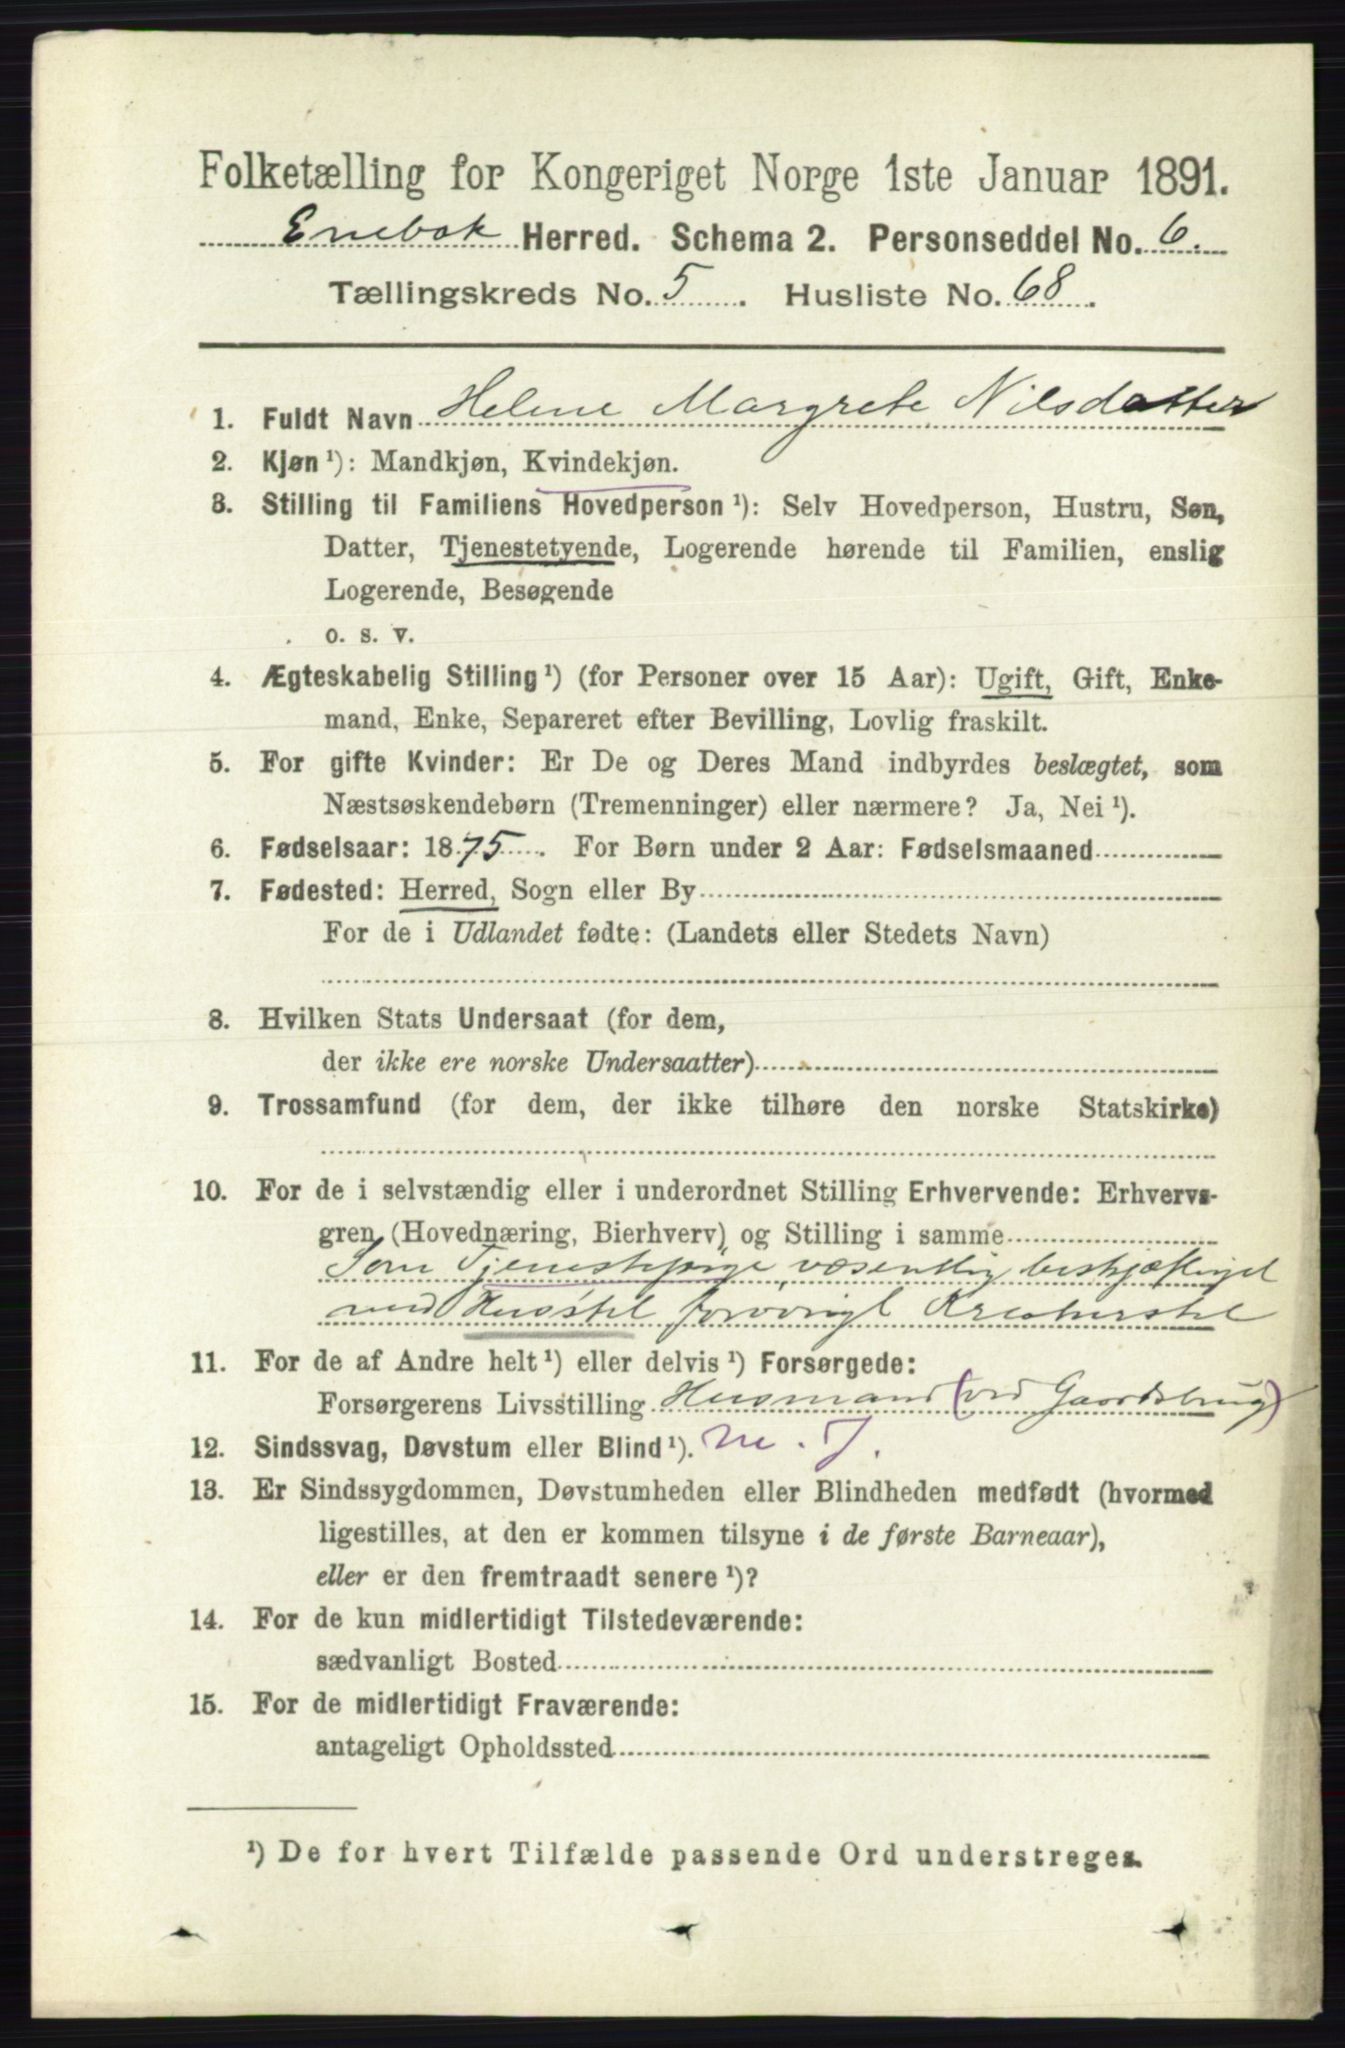 Folketælling for Kongeriget Norge 1ste Januar 1891.
Enebak Herred. Schema 2. Personseddel No. 6.
Tællingskreds No. 5. Husliste No. 68.
1. Fuldt Navn Helene Margrete Nilsdatter
2. Kjøn ¹): Mandkjøn, Kvindekjøn.
3. Stilling til Familiens Hovedperson ¹): Selv Hovedperson, Hustru, Søn,
Datter, Tjenestetyende, Logerende hørende til Familien, enslig
Logerende, Besøgende
o. s. v.
4. Ægteskabelig Stilling ¹) (for Personer over 15 Aar): Ugift, Gift, Enke-
mand, Enke, Separeret efter Bevilling, Lovlig fraskilt.
5. For gifte Kvinder: Er De og Deres Mand indbyrdes beslægtet, som
Næstsøskendebørn (Tremenninger) eller nærmere? Ja, Nei ¹).
6. Fødselsaar: 1875. For Børn under 2 Aar: Fødselsmaaned
7. Fødested: Herred, Sogn eller By
For de i Udlandet fødte: (Landets eller Stedets Navn)
8. Hvilken Stats Undersaat (for dem,
der ikke ere norske Undersaatter)
9. Trossamfund (for dem, der ikke tilhøre den norske Statskirke)
10. For de i selvstændig eller i underordnet Stilling Erhvervende: Erhvervs-
gren (Hovednæring, Bierhverv) og Stilling i samme
Som Tjenestepige, væsentlig beskjæftiget
ved Husstel forøvrigt Kreaturstel
11. For de af Andre helt ¹) eller delvis ¹) Forsørgede:
Forsørgerens Livsstilling Husmand (ved Gaardsbrug)
12. Sindssvag, Døvstum eller Blind ¹). m. J.
13. Er Sindssygdommen, Døvstumheden eller Blindheden medfødt (hvormed
ligestilles, at den er kommen tilsyne i de første Barneaar),
eller er den fremtraadt senere ¹)?
14. For de kun midlertidigt Tilstedeværende:
sædvanligt Bosted
15. For de midlertidigt Fraværende:
antageligt Opholdssted
¹) De for hvert Tilfælde passende Ord understreges.